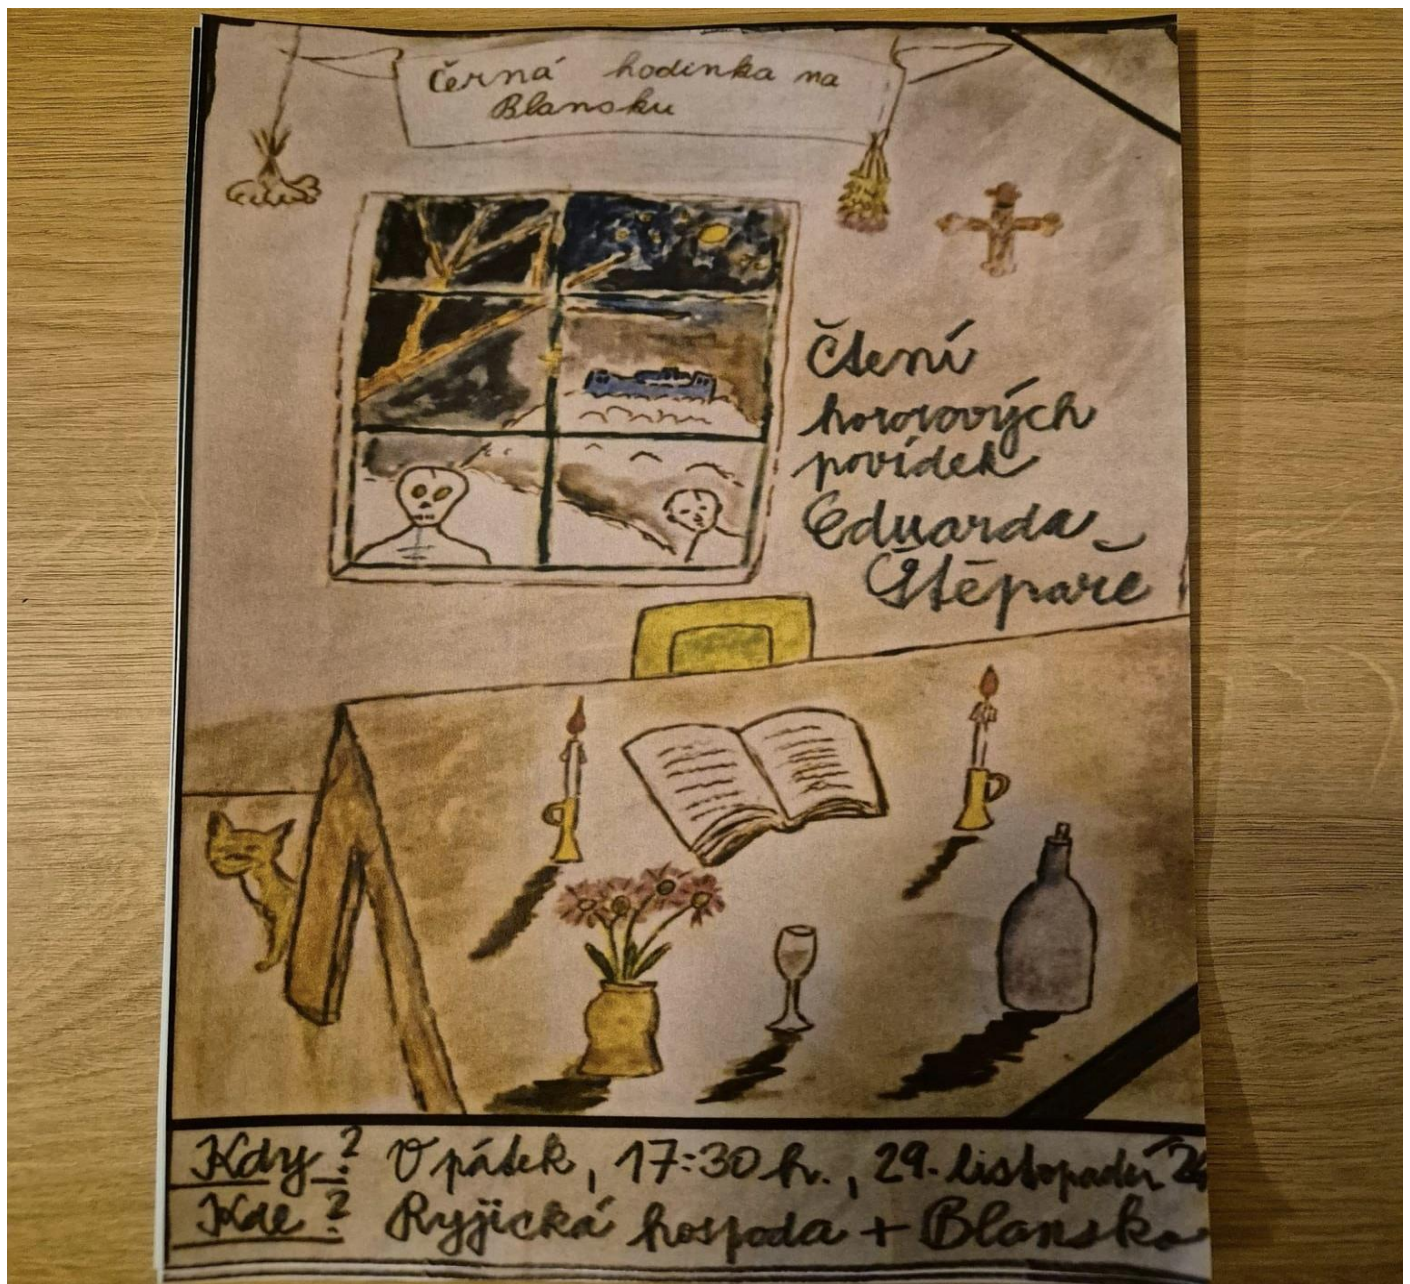 Černá hodinka na
Blansku
Čtení
hororových
povídek
Eduarda
Štěpaře
Kdy? V pátek, 17:30 h., 29. listopadu 24
Kde? Ryjická hospoda + Blansko